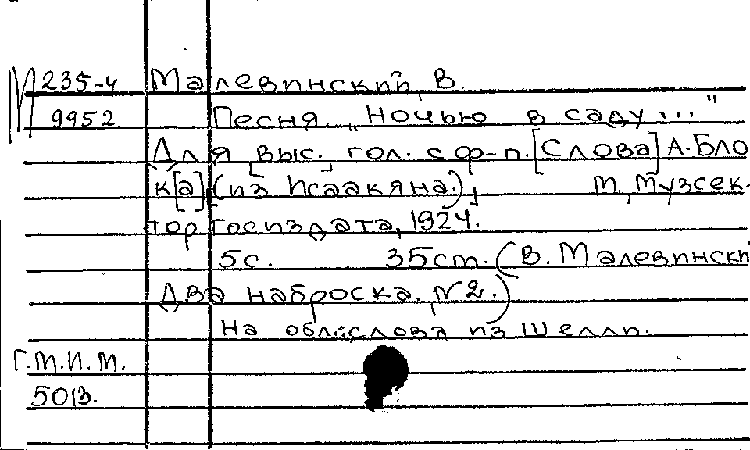 М 235-4 Малевинский, В.
9952 Песня „Ночью в саду..."
Для выс. гол. с ф-п. [Слова] А. Бло
к[а] (из Исаакяна.), М, Музсек-
тор Госиздата, 1924.
5с. 35cm. (В. Малевински
Два наброска. №2.)
На обл: слова из Шелли.
Г.М.И.М.
50В.